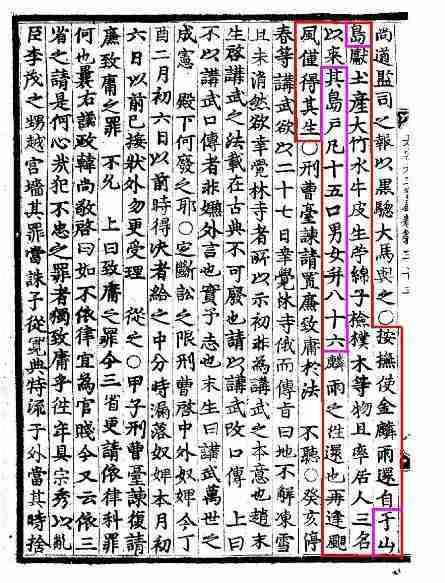 尚道監司之報以黑驄大馬與之○按撫使金麟雨還自于山
島獻土産大竹水牛皮生苧綿子檢樸木等物且率居人三名
以來其島戶凡十五口男女幷八十六麟雨之往還也再逢颶
風僅得其生○刑曹臺諫請置廉致庸於法 不聽○癸亥停
春等講武欲以二十七日幸覺林寺依而傳旨曰地不解凍雪
且未消然欲幸覺林寺者所以示初非爲講武之本意也趙末
生啓講武之法載在古典不可廢也請以講武改口傳 上曰
不以講武口傳者非嫌外言也實予志也末生曰講武萬世之
成憲 殿下何廢之耶○定斷訟之限刑曹啓中外奴婢今丁
酉二月初六日以前時得決者給之中分時漏落奴婢本月初
六日以前已接狀外勿更受理 從之○甲子刑曹臺諫復請
廉致庸之罪 不允 上曰致庸之罪今三省更請依律科罪
何也曩右議政韓尚敬啓曰如不依律宜爲官賤今又云依三
省之請是何心哉犯不忠之罪者獨致庸乎往年具宗秀以亂
臣李茂之甥越宮墻其罪當誅予從寬典特流于外當其時捨